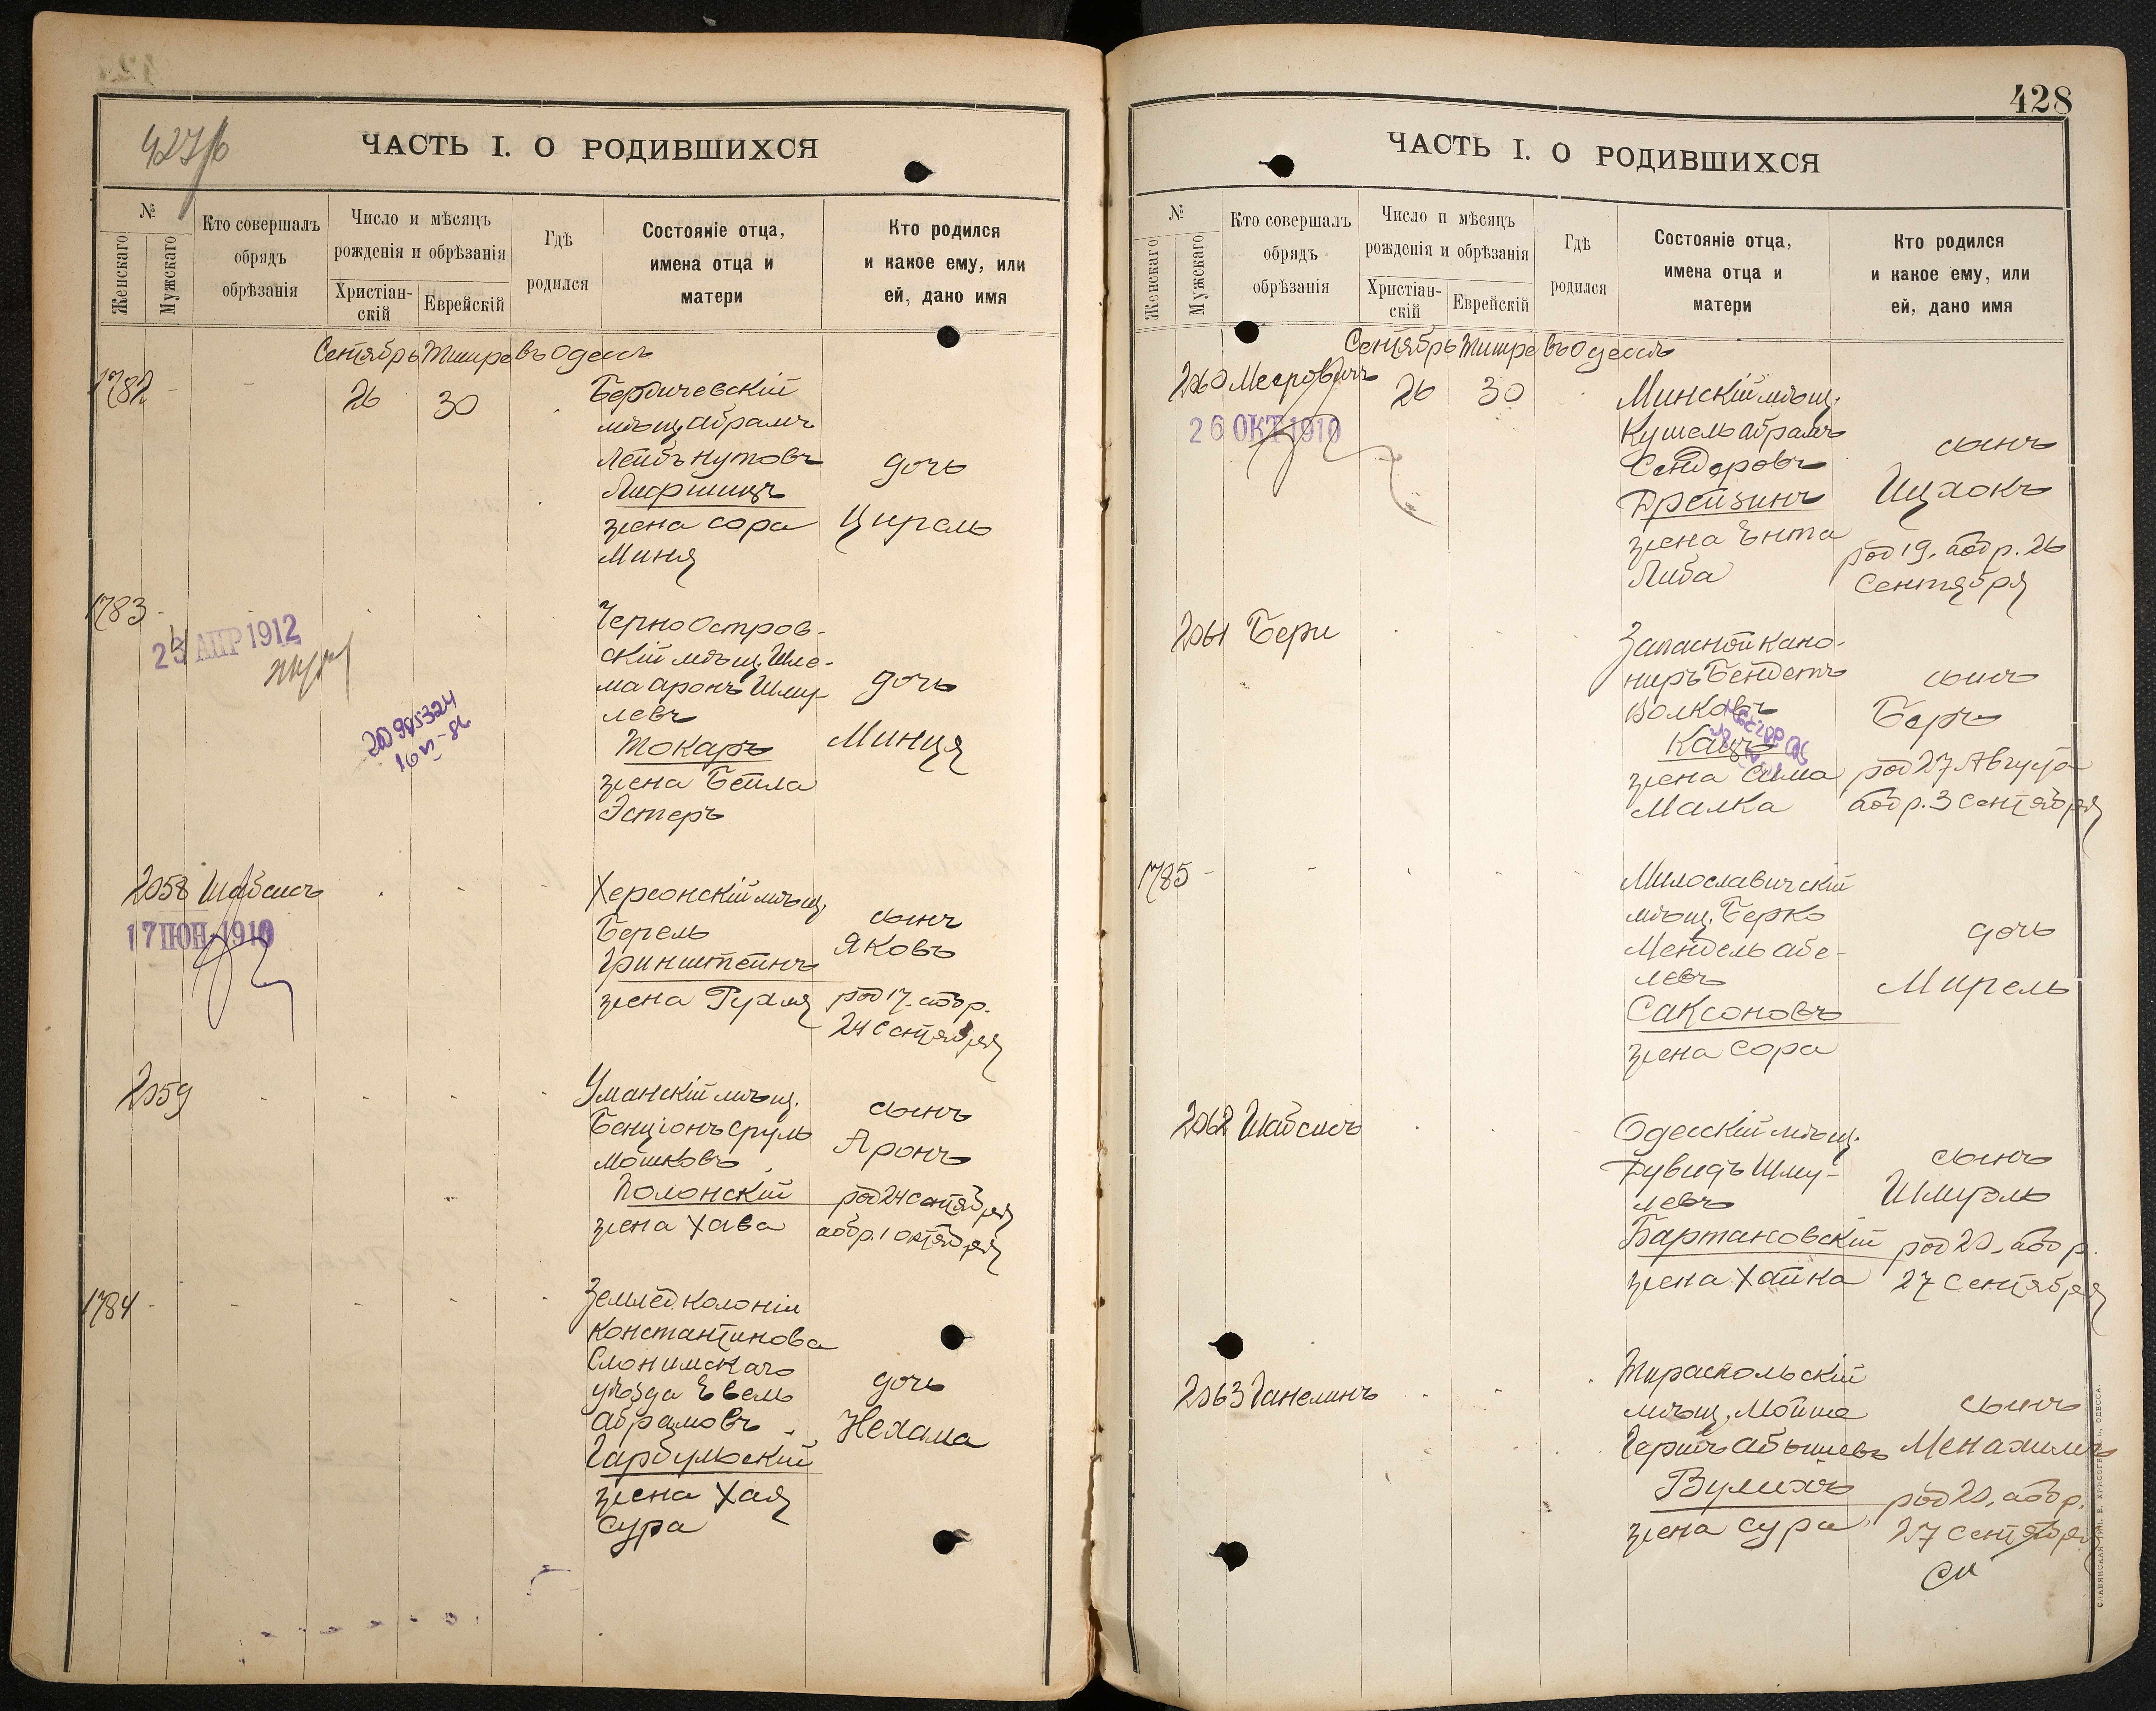 427/б
ЧАСТЬ I. О РОДИВШИХСЯ
№
Женскаго
Мужскаго
Кто совершалъ
обрядъ
обрѣзанія
Число и мѣсяцъ
рожденія и обрѣзанія
Христіан-
скій
Еврейскій
Гдѣ
родился
Состояніе отца,
имена отца и
матери
Кто родился
и какое ему, или
ей, дано имя
Сентябрь Тишре въ Одессѣ
1782 - - 26 30
Бердичевскій
мѣщ. Абрамъ
Лейбъ Нутовъ
Лифшицъ
жена Сора
Миня
дочь
Цирель
1783 -
23 АПР 1912
2D 985324
16 VI - 86
Черно Остров-
скій мѣщ. Шле-
ма Аронъ Шму-
левъ
Токаръ
жена Бейла
Эстеръ
дочь
Минця
2058 Шабсисъ
17 ІЮН. 1910
Херсонскій мѣщ.
Берель
Гринштейнъ
жена Рухля
сынъ
Яковъ
род 17. аобр.
24 Сентября
2059
Уманскій мѣщ.
Бенціонъ Сруль
Мошковъ
Полонскій
жена Хава
сынъ
Аронъ
род 24 Сентября
аобр. 1 Октября
1784 -
Землед. колоніи
Константинова
Слонимскаго
уѣзда Евель
Абрамовъ
Гарбульскій
жена Хая
Сура
дочь
Нехама
428
ЧАСТЬ I. О РОДИВШИХСЯ
№
Женскаго
Мужскаго
Кто совершалъ
обрядъ
обрѣзанія
Число и мѣсяцъ
рожденія и обрѣзанія
Христіан-
скій
Еврейскій
Гдѣ
родился
Состояніе отца,
имена отца и
матери
Кто родился
и какое ему, или
ей, дано имя
Сентябрь Тишре въ Одессѣ
2060 Мееровичъ 26 30
26 ОКТ 1910
Минскій мѣщ.
Кушель Абрамъ
Сендеровъ
Дрейзинъ
жена Ента
Либа
сынъ
Ицхокъ
род 19. аобр. 26
Сентября
2061 Бери
Запасной кано-
ниръ Бендетъ
Волковъ
Кацъ
жена Сима
Малка
сынъ
Беръ
род 27 Августа
аобр. 3 Сентября
1785 -
Милославичскій
мѣщ. Берко
Мендель Абе-
левъ
Саксоновъ
жена Сора
дочь
Мирель
2062 Шабсисъ
Одесскій мѣщ.
Дувидъ Шму-
левъ
Бартановскій
жена Хайка
сынъ
Шмуэль
род 20. аобр.
27 Сентября
2063 Ганелинъ
Тираспольскій
мѣщ. Мойше
Гершъ Абышевъ
Вулихъ
жена Сура
сынъ
Менахимъ
род 20. аобр.
27 Сентября
СЛАВЯНСКАЯ ТИП. Е. ХРИСОГЕЛОСЪ, ОДЕССА.